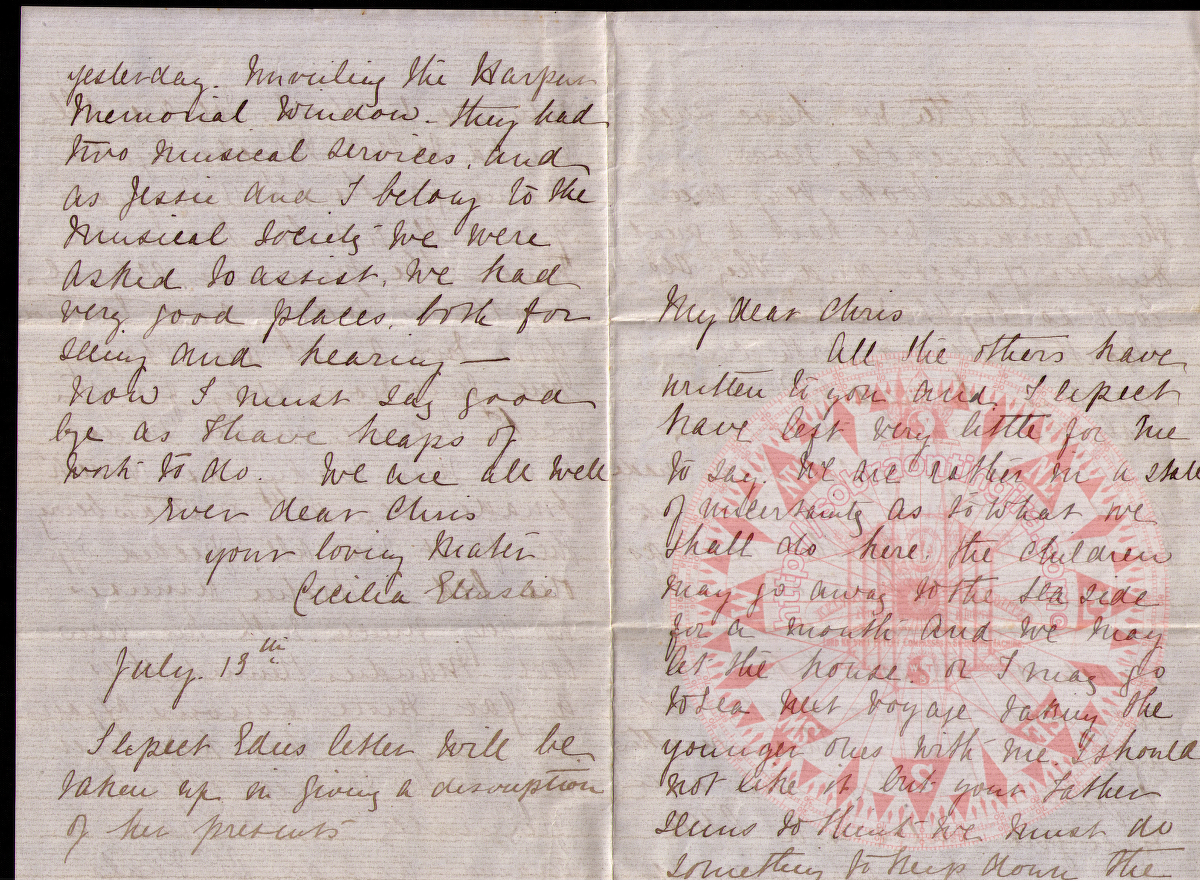 yesterday. Unveiling the Harper
Memorial Window - they had
two musical services, and
as Jessie and I belong to the
Musical Society we were
asked to assist, we had
very good places, both for
seeing and hearing —
Now I must say good
bye as I have heaps of
work to do. We are all well
Ever dear Chris
your loving Mater
Cecilia
July. 13th
I expect Edies letter will be
taken up in giving a discription
of her presents
My dear Chris
All the others have
written to you and, I expect
have left very little for me
to say. We are rather in a state
of uncertainty as to what we
shall do here. the children
may go away to the sea side
for a month and we may
let the house. or I may go
to sea next voyage taking the
younger ones with me I should
not like it but your Father
seems to think we must do
something to keep down the